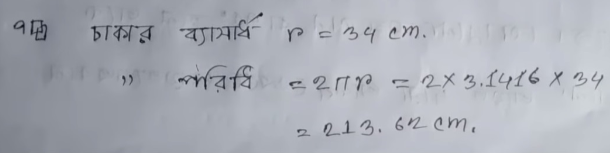 ৭।ঘ চাকার ব্যাসার্ধ r = 34 cm.
,, পরিধি = 2πr = 2 × 3.1416 × 34
= 213.62 cm.